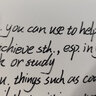 you can use to help
achieve sth., esp. in y
k or study
u, things such as coa